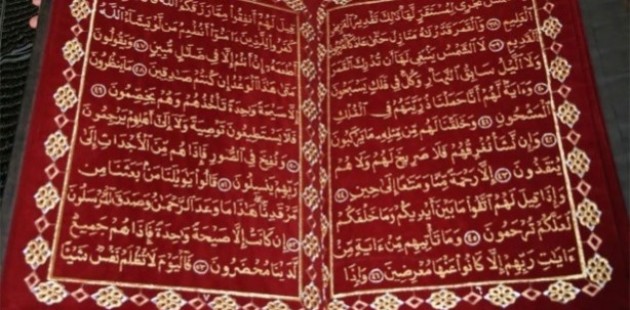 تَجْرِى لِمُسْتَقَرٍّ لَّهَا ذَٰلِكَ تَقْدِيرُ الْعَزِيزِ
الْعَلِيمِ ٣٨ وَالْقَمَرَ قَدَّرْنَٰهُ مَنَازِلَ حَتَّىٰ عَادَ كَالْعُرْجُونِ
الْقَدِيمِ ٣٩ لَا الشَّمْسُ يَنۢبَغِى لَهَا أَن تُدْرِكَ الْقَمَرَ
وَلَا الَّيْلُ سَابِقُ النَّهَارِ وَكُلٌّ فِى فَلَكٍ يَسْبَحُونَ
٤٠ وَءَايَةٌ لَّهُمْ أَنَّا حَمَلْنَا ذُرِّيَّتَهُمْ فِى الْفُلْكِ
الْمَشْحُونِ ٤١ وَخَلَقْنَا لَهُم مِّن مِّثْلِهِ مَا يَرْكَبُونَ
٤٢ وَإِن نَّشَأْ نُغْرِقْهُمْ فَلَا صَرِيخَ لَهُمْ وَلَا هُمْ
يُنقَذُونَ ٤٣ إِلَّا رَحْمَةً مِّنَّا وَمَتَٰعًا إِلَىٰ حِينٍ ٤٤
وَإِذَا قِيلَ لَهُمُ اتَّقُوا مَا بَيْنَ أَيْدِيكُمْ وَمَا خَلْفَكُمْ
لَعَلَّكُمْ تُرْحَمُونَ ٤٥ وَمَا تَأْتِيهِم مِّنْ ءَايَةٍ مِّنْ
ءَايَٰتِ رَبِّهِمْ إِلَّا كَانُوا عَنْهَا مُعْرِضِينَ ٤٦ وَإِذَا
قِيلَ لَهُمْ أَنفِقُوا مِمَّا رَزَقَكُمُ اللَّهُ
كَفَرُوا لِلَّذِينَ ءَامَنُوا أَنُطْعِمُ مَن لَّوْ يَشَاءُ اللَّهُ
أَطْعَمَهُ إِنْ أَنتُمْ إِلَّا فِى ضَلَٰلٍ مُّبِينٍ ٤٧ وَيَقُولُونَ
مَتَىٰ هَٰذَا الْوَعْدُ إِن كُنتُمْ صَٰدِقِينَ ٤٨ مَا يَنظُرُونَ
إِلَّا صَيْحَةً وَٰحِدَةً تَأْخُذُهُمْ وَهُمْ يَخِصِّمُونَ ٤٩
فَلَا يَسْتَطِيعُونَ تَوْصِيَةً وَلَا إِلَىٰ أَهْلِهِمْ يَرْجِعُونَ
٥٠ وَنُفِخَ فِى الصُّورِ فَإِذَا هُم مِّنَ الْأَجْدَاثِ إِلَىٰ
رَبِّهِمْ يَنسِلُونَ ٥١ قَالُوا يَٰوَيْلَنَا مَنۢ بَعَثَنَا مِن
مَّرْقَدِنَا هَٰذَا مَا وَعَدَ الرَّحْمَٰنُ وَصَدَقَ الْمُرْسَلُونَ
٥٢ إِن كَانَتْ إِلَّا صَيْحَةً وَٰحِدَةً فَإِذَا هُمْ جَمِيعٌ
لَّدَيْنَا مُحْضَرُونَ ٥٣ فَالْيَوْمَ لَا تُظْلَمُ نَفْسٌ شَيْئًا